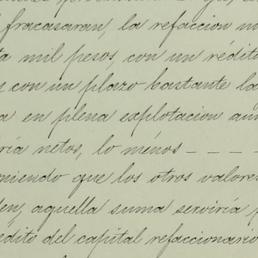 fracasaran, la refaccion
mil pesos, con un rédito
con un plazo bastante la
a en plena explotacion
ría netos, lo ménos - - - -
niendo que los otros valores
den, aquella suma serviría
édito del capital refaccionario